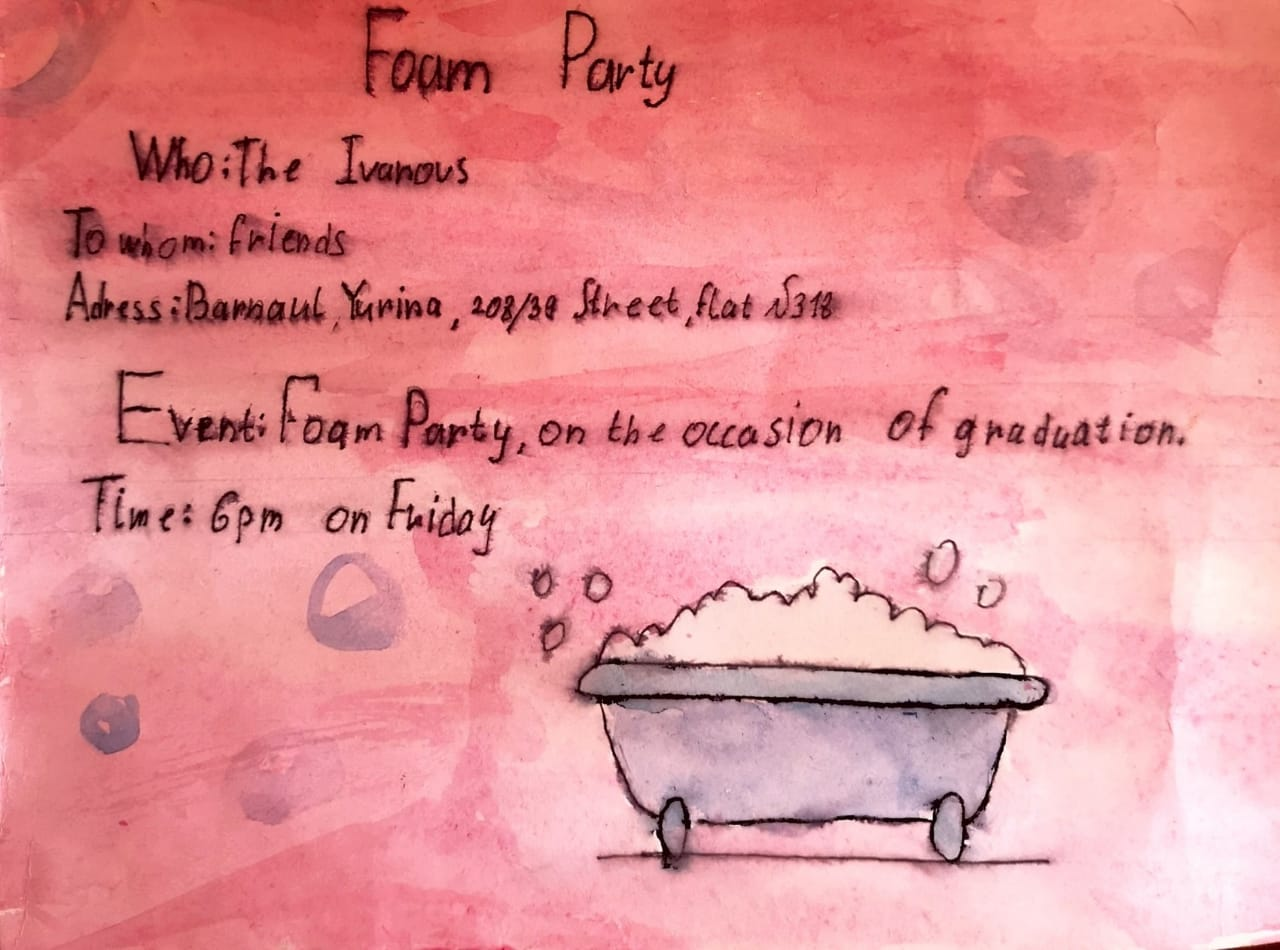 Foam Party
Who: The Ivanovs
To whom: friends
Adress: Barnaul, Yurina, Street, flat №318
Event: Foam Party, on the occasion of graduation.
Time: 6pm on Friday